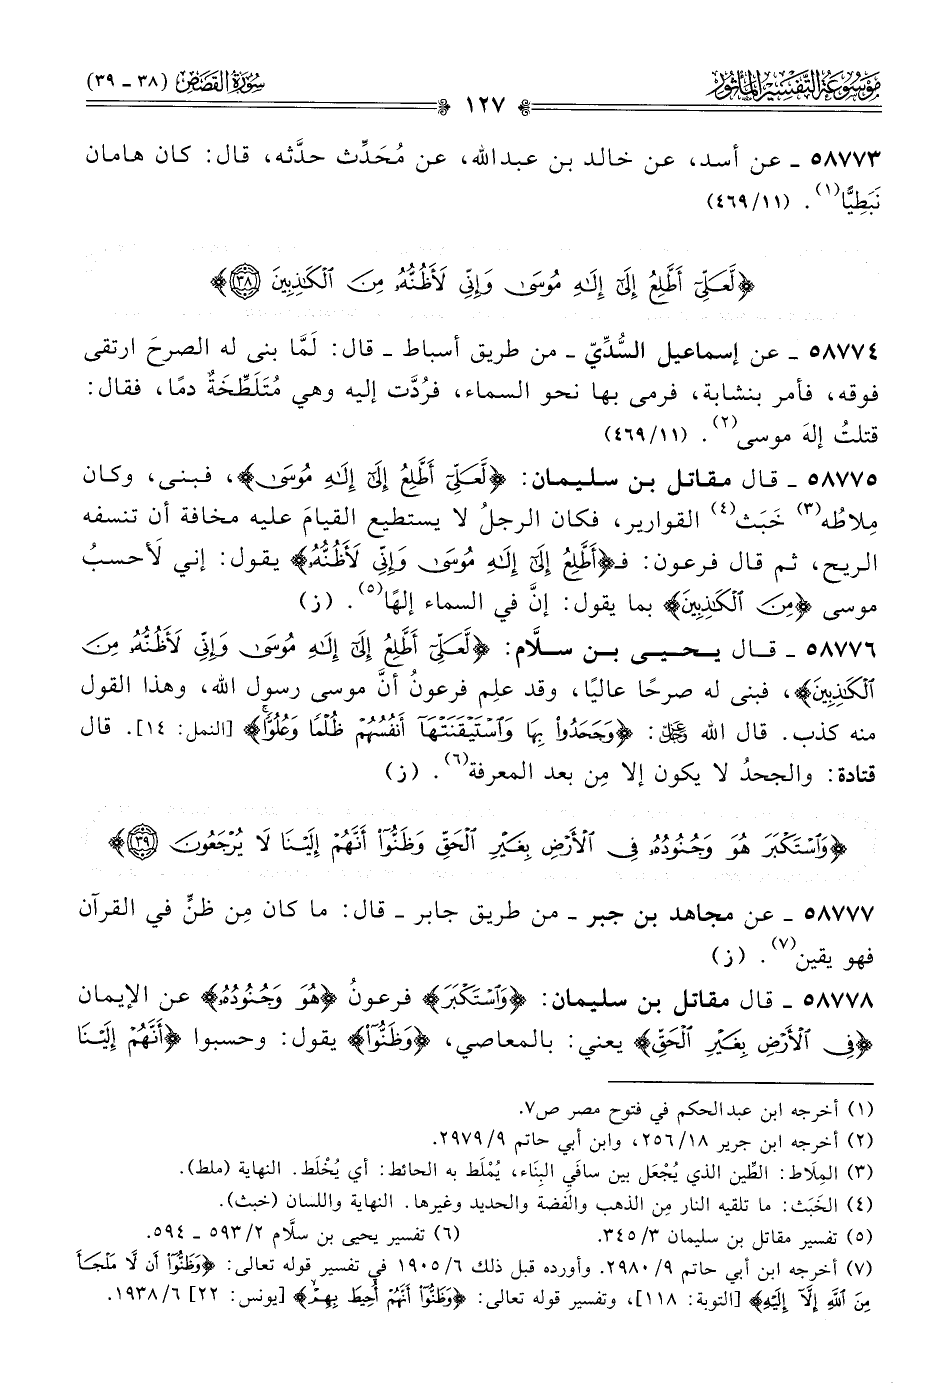 موسوعة التفسير المأثور
سورة القصص (٣٨ - ٣٩)
١٢٧
٥٨٧٧٣ - عن أسد، عن خالد بن عبدالله، عن مُحَدِّث حدَّثه، قال: كان هامان
نَبَطِيًّا(١). (٤٦٩/١١)
﴿لَّعَلِّىٓ أَطَّلِعُ إِلَىٰٓ إِلَـٰهِ مُوسَىٰ وَإِنِّى لَأَظُنُّهُۥ مِنَ ٱلْكَـٰذِبِينَ ٣٨﴾
٥٨٧٧٤ - عن إسماعيل السُّدِّيّ - من طريق أسباط - قال: لَمَّا بنى له الصرحَ ارتقى
فوقه، فأمر بنشابة، فرمى بها نحو السماء، فرُدَّت إليه وهي مُتَلَطِّخَةٌ دمًا، فقال:
قتلتُ إلهَ موسى(٢). (٤٦٩/١١)
٥٨٧٧٥ - قال مقاتل بن سليمان: ﴿لَّعَلِّىٓ أَطَّلِعُ إِلَىٰٓ إِلَـٰهِ مُوسَىٰ﴾، فبنى، وكان
مِلاطُه(٣) خَبَث(٤) القوارير، فكان الرجلُ لا يستطيع القيامَ عليه مخافة أن تنسفه
الريح، ثم قال فرعون: فـ﴿أَطَّلِعُ إِلَىٰٓ إِلَـٰهِ مُوسَىٰ وَإِنِّى لَأَظُنُّهُۥ﴾ يقول: إني لَأحسبُ
موسى ﴿مِنَ ٱلْكَـٰذِبِينَ﴾ بما يقول: إنَّ في السماء إلهًا(٥). (ز)
٥٨٧٧٦ - قال يحيى بن سلَّام: ﴿لَّعَلِّىٓ أَطَّلِعُ إِلَىٰٓ إِلَـٰهِ مُوسَىٰ وَإِنِّى لَأَظُنُّهُۥ مِنَ
ٱلْكَـٰذِبِينَ﴾، فبنى له صرحًا عاليًا، وقد علِم فرعونُ أنَّ موسى رسول الله، وهذا القول
منه كذب. قال الله ﷻ: ﴿وَجَحَدُوا۟ بِهَا وَٱسْتَيْقَنَتْهَآ أَنفُسُهُمْ ظُلْمًا وَعُلُوًّا ۚ﴾ [النمل: ١٤]. قال
قتادة: والجحدُ لا يكون إلا مِن بعد المعرفة(٦). (ز)
﴿وَٱسْتَكْبَرَ هُوَ وَجُنُودُهُۥ فِى ٱلْأَرْضِ بِغَيْرِ ٱلْحَقِّ وَظَنُّوٓا۟ أَنَّهُمْ إِلَيْنَا لَا يُرْجَعُونَ ٣٩﴾
٥٨٧٧٧ - عن مجاهد بن جبر - من طريق جابر - قال: ما كان مِن ظنٍّ في القرآن
فهو يقين(٧). (ز)
٥٨٧٧٨ - قال مقاتل بن سليمان: ﴿وَٱسْتَكْبَرَ﴾ فرعونُ ﴿هُوَ وَجُنُودُهُۥ﴾ عن الإيمان
﴿فِى ٱلْأَرْضِ بِغَيْرِ ٱلْحَقِّ﴾ يعني: بالمعاصي، ﴿وَظَنُّوٓا۟﴾ يقول: وحسبوا ﴿أَنَّهُمْ إِلَيْنَا
(١) أخرجه ابن عبدالحكم في فتوح مصر ص٧.
(٢) أخرجه ابن جرير ٢٥٦/١٨، وابن أبي حاتم ٢٩٧٩/٩.
(٣) المِلَاط: الطِّين الذي يُجْعَل بين سافَي البِنَاء، يُمْلَط به الحائط: أي يُخْلَط. النهاية (ملط).
(٤) الخَبَث: ما تلقيه النار مِن الذهب والفضة والحديد وغيرها. النهاية واللسان (خبث).
(٥) تفسير مقاتل بن سليمان ٣٤٥/٣. (٦) تفسير يحيى بن سلَّام ٥٩٣/٢ - ٥٩٤.
(٧) أخرجه ابن أبي حاتم ٢٩٨٠/٩. وأورده قبل ذلك ١٩٠٥/٦ في تفسير قوله تعالى: ﴿وَظَنُّوٓا۟ أَن لَّا مَلْجَأَ
مِنَ ٱللَّهِ إِلَّآ إِلَيْهِ﴾ [التوبة: ١١٨]، وتفسير قوله تعالى: ﴿وَظَنُّوٓا۟ أَنَّهُمْ أُحِيطَ بِهِمْ ۙ﴾ [يونس: ٢٢] ١٩٣٨/٦.